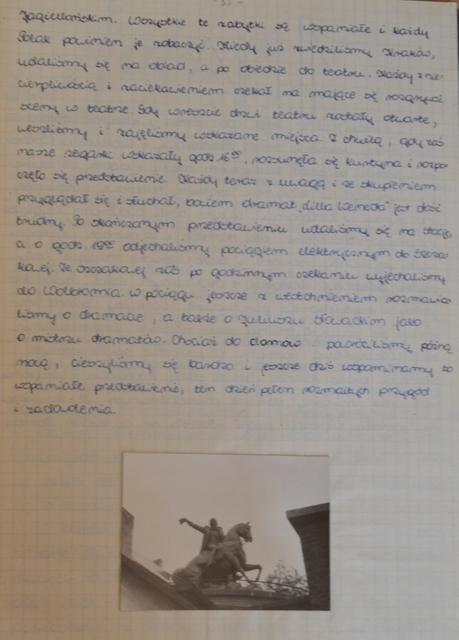 Jagiellońskim. Wszystkie te zabytki są wspaniałe i każdy
Polak powinien je zobaczyć. Kiedy już zwiedziliśmy Kraków,
udaliśmy się na obiad, a po obiedzie do teatru. Każdy z nie-
cierpliwością i zaciekawieniem czekał na mające się rozegrać
sceny w teatrze. Gdy wreszcie drzwi teatru zostały otwarte,
weszliśmy i zajęliśmy wskazane miejsca. Z chwilą, gdy zaś
nasze zegarki wskazały godz. 16⁰⁰, rozsunęła się kurtyna i rozpo-
częło się przedstawienie. Każdy teraz z uwagą i ze skupieniem
przyglądał się i słuchał, bowiem dramat „Lilla Weneda" jest dość
trudny. Po skończonym przedstawieniu udaliśmy się na stację,
a o godz. 19⁰⁰ odjechaliśmy pociągiem elektrycznym do Szcza-
kowej. Ze Szczakowej zaś po godzinnym czekaniu wyjechaliśmy
do Wolbromia. W pociągu jeszcze z wytchnieniem rozmawia-
liśmy o dramacie, a także o Juliuszu Słowackim jako
o mistrzu dramatów. Chociaż do domów powróciliśmy późną
nocą, cieszyliśmy się bardzo i jeszcze dziś wspominamy to
wspaniałe przedstawienie, ten dzień pełen rozmaitych przygód
i zadowolenia.